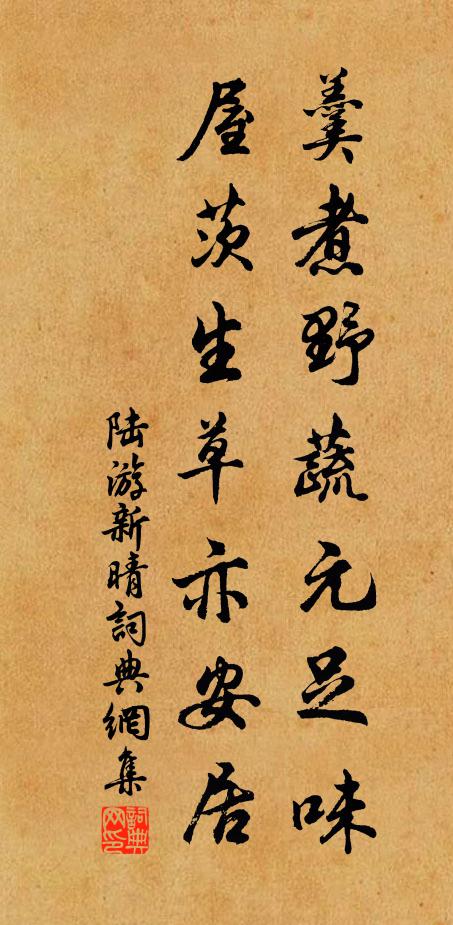 羹煮野蔬元足味
屋茨生草亦安居
陆游新晴詞典網集
詞典網印